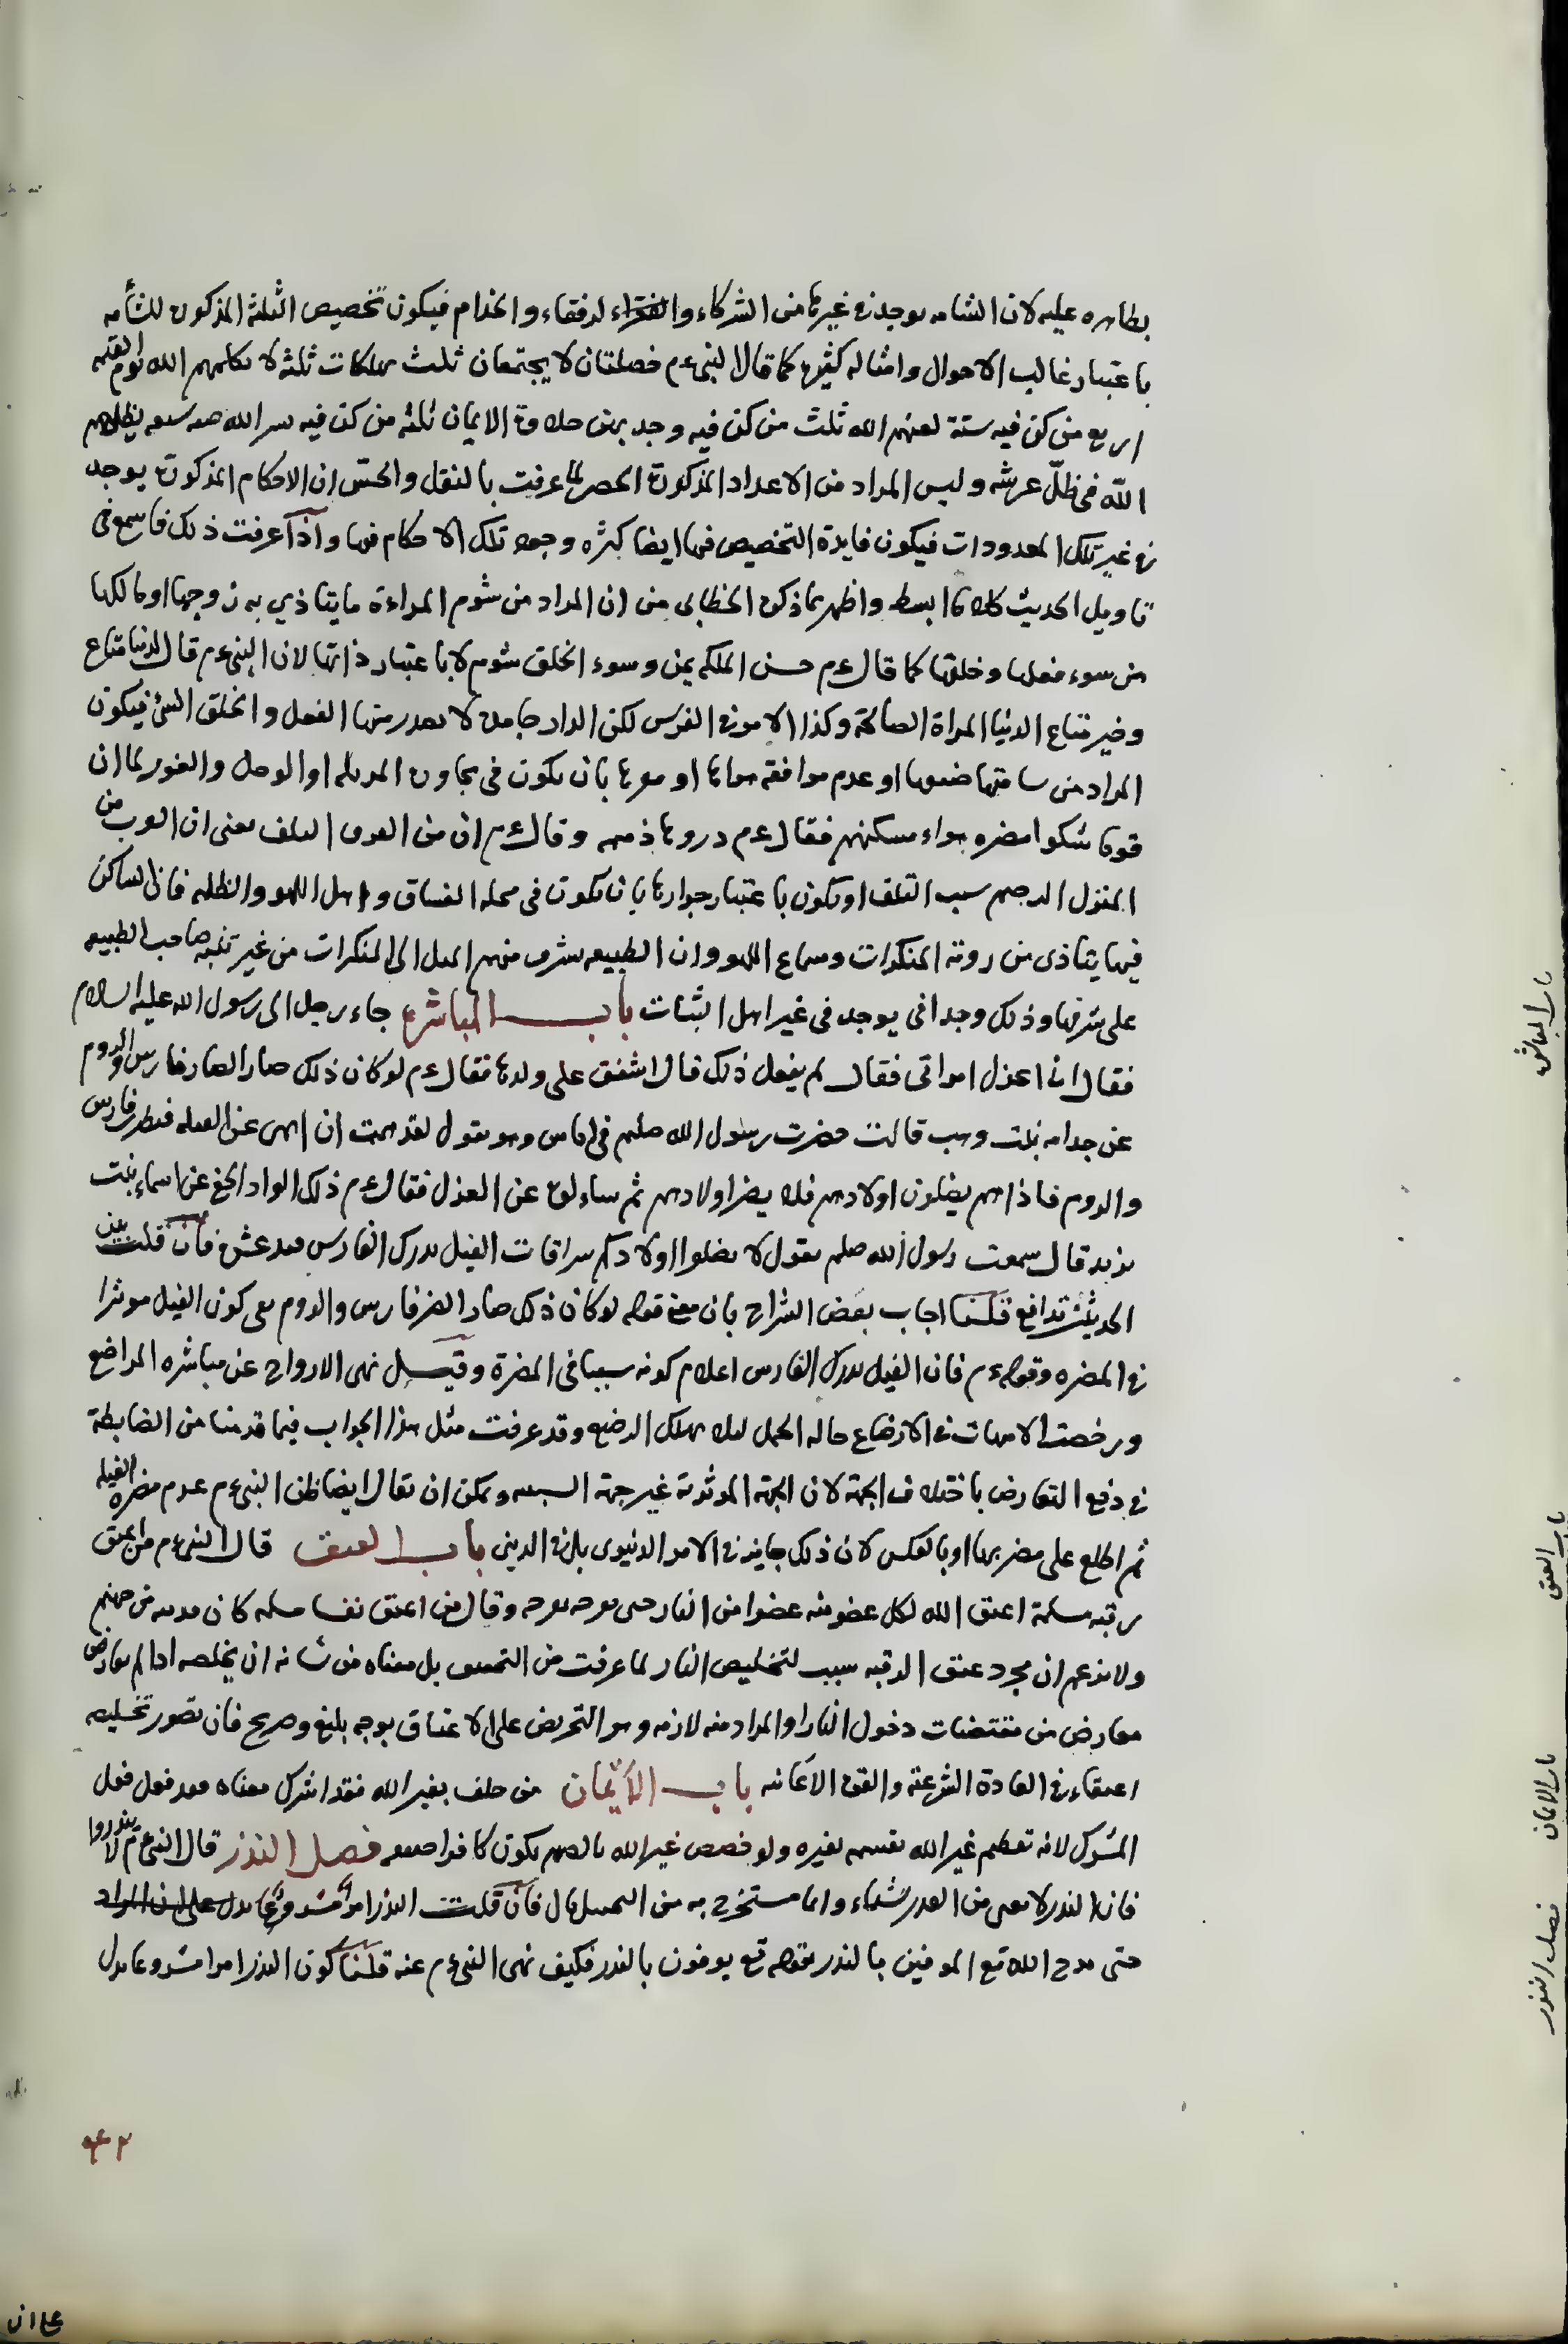 بظاهره عليه لان الشامه يوجد في غيرها من الشركاء والفقراء لرفقاء والخدام فيكون تخصيص الثلثة المذكورة للشامه
باعتبار غالب الاحوال وامثاله كثيرة كما قال النبى عم خصلتان لا يجتمعان ثلث مهلكات ثلثة لا يكلمهم الله يوم القيمه
اربع من كن فيه ستة لعنهم الله ثلث من كن فيه وجد بهن حلاوة الايمان ثلثه من كن فيه يسر الله سبعه يظلهم
الله فى ظلّ عرشه وليس المراد من الاعداد المذكورة الحصر لما عرفت بالنقل والحسّ ان الاحكام المذكورة يوجد
في غير تلك المعدودات فيكون فايدة التخصيص فيها ايضا كثره وجود تلك الاحكام فيها واذا عرفت ذلك فاسمع فى
تاويل الحديث كلاما ابسط واظهر مما ذكره الخطابى من ان المراد من شوم المراءة ما يتاذي به زوجها او مالكها
من سوء فعلها وخلقها كما قال عم حسن الملكه يمن وسوء الخلق شوم لا باعتبار ذاتها لان النبى عم قال الدنيا متاع
وخير متاع الدنيا المراة الصالحة وكذا الامر في الفرس لكن الدار جامدة لا يصدر منها الفعل والخلق السئ فيكون
المراد من سامتها ضيقها او عدم موافقه هوائها او بان يكون فى مجاورة المزبله او الوحل لما ان
قوما شكوا مضره هواء مسكنهم فقال عم دروها ذميمه وقال عم ان من القرف التلف يعنى ان القرب من
المنزل سبب التلف او يكون باعتبار جوارها بان يكون فى محله الفساق واهل اللهو والظلمه فان الساكن
فيها يتاذى من روية المنكرات وسماع اللهو وان الطبيعه منهم الميل الى المنكرات من غير تنبه صاحب الطبيعه
على وذلك وجدانى يوجد فى غير اهل الثبات باب المباشرة جاء رجل الى رسول الله عليه السلام
فقال انا اعزل امراتى فقال لم يفعل ذلك قال اشفق على ولدها فقال عم لو كان ذلك ضارا لضار فارس والروم
عن جدامه بنت وهب قالت حضرت رسول الله صلعم فى اناس وهو يقول لقد هممت ان انهى عن الغيله فنظر فارس
والروم فاذا هم يغيلون اولادهم فلا يضر اولادهم ثم ساءلوه عن العزل فقال عم ذلك الواد الخفى عن اسماء بنت
يزيد قال سمعت رسول الله صلعم يقول لا تقتلوا اولادكم سرا فان الغيل يدرك الفارس فيدعثره فان قلت بين
الحديثين تدافع قلنا اجاب بعض الشراح بان معنى قوله لو كان ذلك ضارا لضر فارس والروم نفى كون الغيل موثرا
في المضره وقوله عم فان الغيل يدرك الفارس اعلام كونه سببا فى المضرة وقيل نهى الازواج عن مباشره المراضع
ورخصت الامهات في الارضاع حاله الحمل ليلا يهلك الرضيع وقد عرفت مثل هذا الجواب فيما قدمنا من الضابطة
في دفع التعارض باختلاف الجهة لان الجهة الموثرية غير جهة السببيه ويمكن ان يقال ايضا ظن النبى عم عدم مضره الغيله
ثم اطلع على مضرتها او بالعكس لان ذلك جايز في الامر الدنيوى بل في الدينى باب العتق قال النبى عم من اعتق
رقبة مسلمة اعتق الله لكل عضو منه عضوا من النار حتى فرجه بفرجه وقال من اعتق نفسا مسلمه كان فديته من جهنم
ولا يزعم ان مجرد عتق الرقبه سبب لتخليص النار لما عرفت من بل معناه من شانه ان يخلصه اذا لم يعارض
معارض من مقتضيات دخول النار او المراد منه لازمه وهو التحريض على الاعتاق بوجه بليغ وصريح فان تصور تخليصه
اعتقاء في العادة الشرعية والقوة الايمانيه باب الأيمان من حلف بغير الله فقد اشرك معناه فقد فعل فعل
المشرك لانه تعظيم غير الله بقسمه بغيره ولو خصص غير الله بالقسم يكون كافرا حقيقه فصل النذر قال النبى عم لا تنذروا
فان النذر لا يغنى من القدر شياء وانما يستخرج به من البخيل مال فان قلت النذر امر مشروع
حتى مدح الله تع الموفين بالنذر بقوله تع يوفون بالنذر فكيف نهى النبى عم عنه قلنا كون النذر امرا مشروعا يدل
۴۲
على ان
باب المباشرة
باب العتق
باب الايمان
فصل النذر